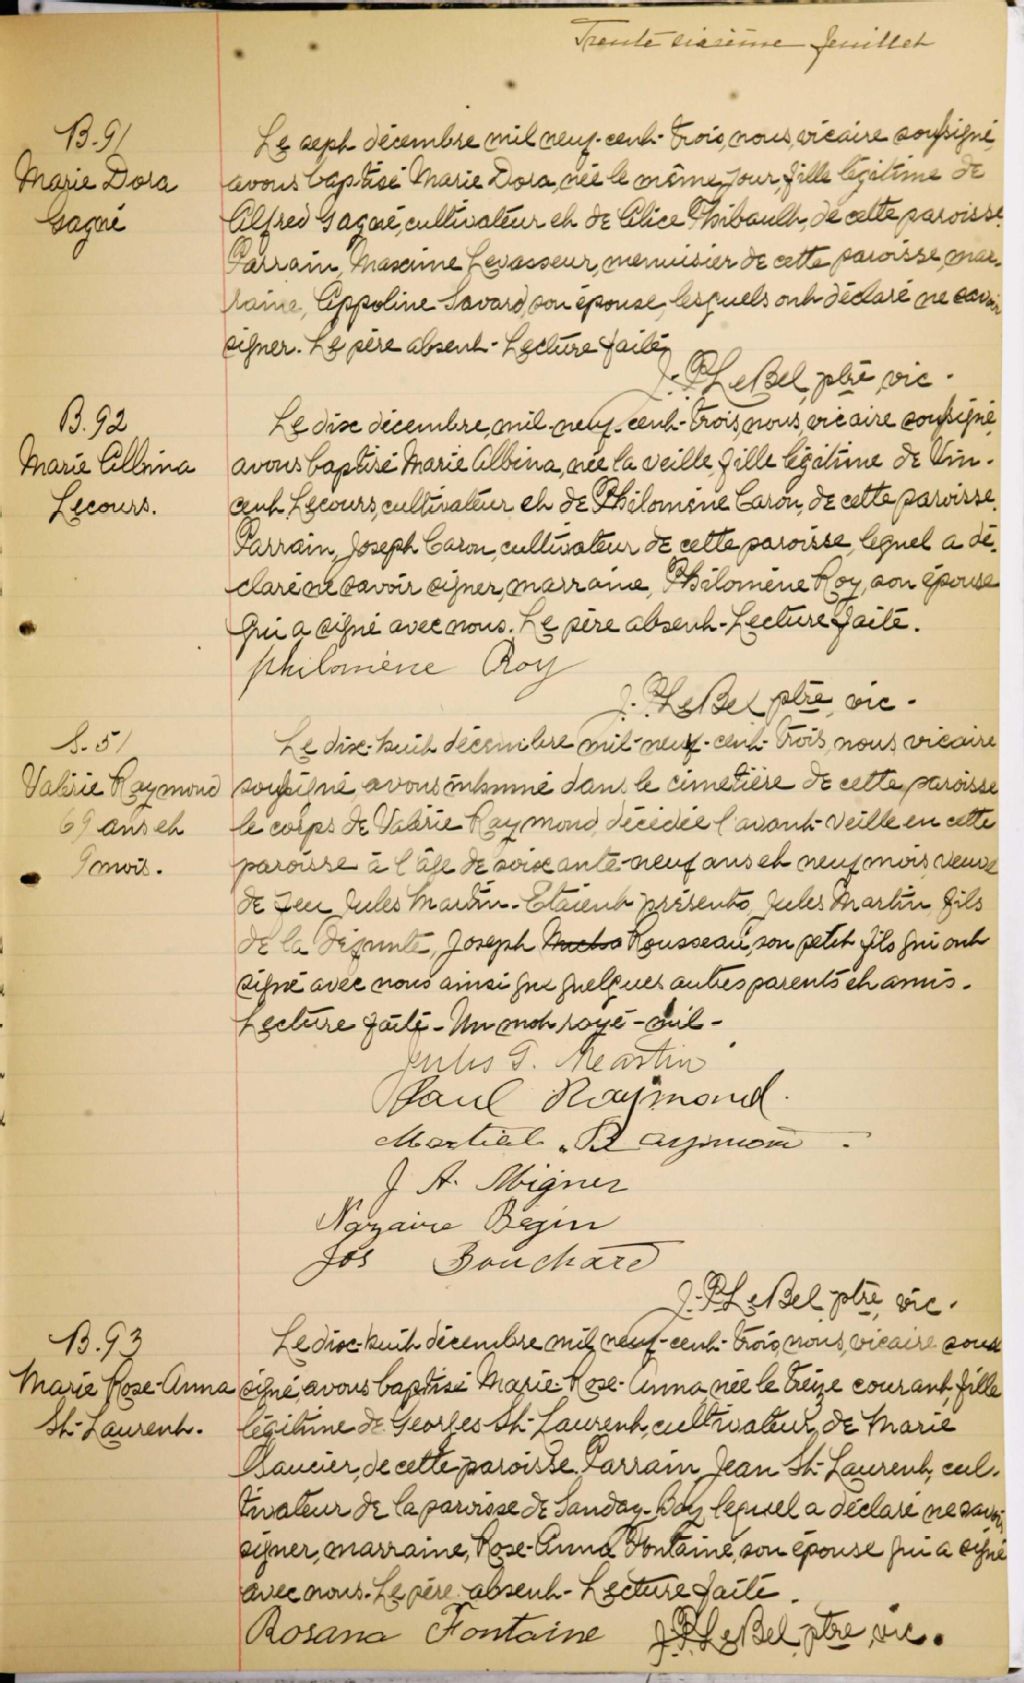 Trente sixième feuillet
B. 91
Marie Dora
Gagné
Le sept décembre mil neuf-cent-trois, nous, vicaire soussigné
avons baptisé Marie Dora, née le même jour, fille légitime de
Alfred Gagné, cultivateur et de Alice Thibault, de cette paroisse.
Parrain, Maxime Levasseur, menuisier de cette paroisse, mar-
raine, Appoline Savard, son épouse, lesquels ont déclaré ne savoir
signer. Le père absent - Lecture faite.
J. P. LeBel, ptre, vic.
B. 92
Marie Albina
Lecours.
Le dix décembre, mil-neuf-cent-trois, nous, vicaire soussigné,
avons baptisé Marie Albina, née la veille, fille légitime de Vin-
cent Lecours, cultivateur et de Philomène Caron, de cette paroisse.
Parrain, Joseph Caron, cultivateur de cette paroisse, lequel a dé-
claré ne savoir signer, marraine, Philomène Roy, son épouse
qui a signé avec nous. Le père absent - Lecture faite.
Philomène Roy
J. P. LeBel ptre, vic.
S. 51
Valérie Raymond
69 ans et
9 mois.
Le dix-huit décembre mil-neuf-cent-trois, nous vicaire
soussigné, avons inhumé dans le cimetière de cette paroisse
le corps de Valérie Raymond, décédée l'avant-veille en cette
paroisse à l'âge de soixante-neuf ans et neuf mois, veuve
de feu Jules Martin. Etaient présents, Jules Martin, fils
de la défunte, Joseph Rousseau, son petit fils qui ont
signé avec nous ainsi que quelques autres parents et amis.
Lecture faite - Un mot rayé - nul -
Jules G. Martin
Paul Raymond.
Martial Raymond.
J A. Migner
Nazaire Bégin
Jos Bouchard
J. P. LeBel ptre, vic.
B. 93
Marie Rose-Anna
St-Laurent.
Le dix-huit décembre mil neuf-cent-trois, nous, vicaire sous
signé, avons baptisé Marie-Rose-Anna, née le treize courant, fille
légitime de Georges St-Laurent, cultivateur, de Marie
Saucier, de cette paroisse. Parrain, Jean St-Laurent, cul-
tivateur de la paroisse de Sanday-Bay, lequel a déclaré ne savoir
signer, marraine, Rose-Anna Fontaine, son épouse qui a signé
avec nous. Le père absent - Lecture faite.
Rosana Fontaine J. P. LeBel, ptre, vic.